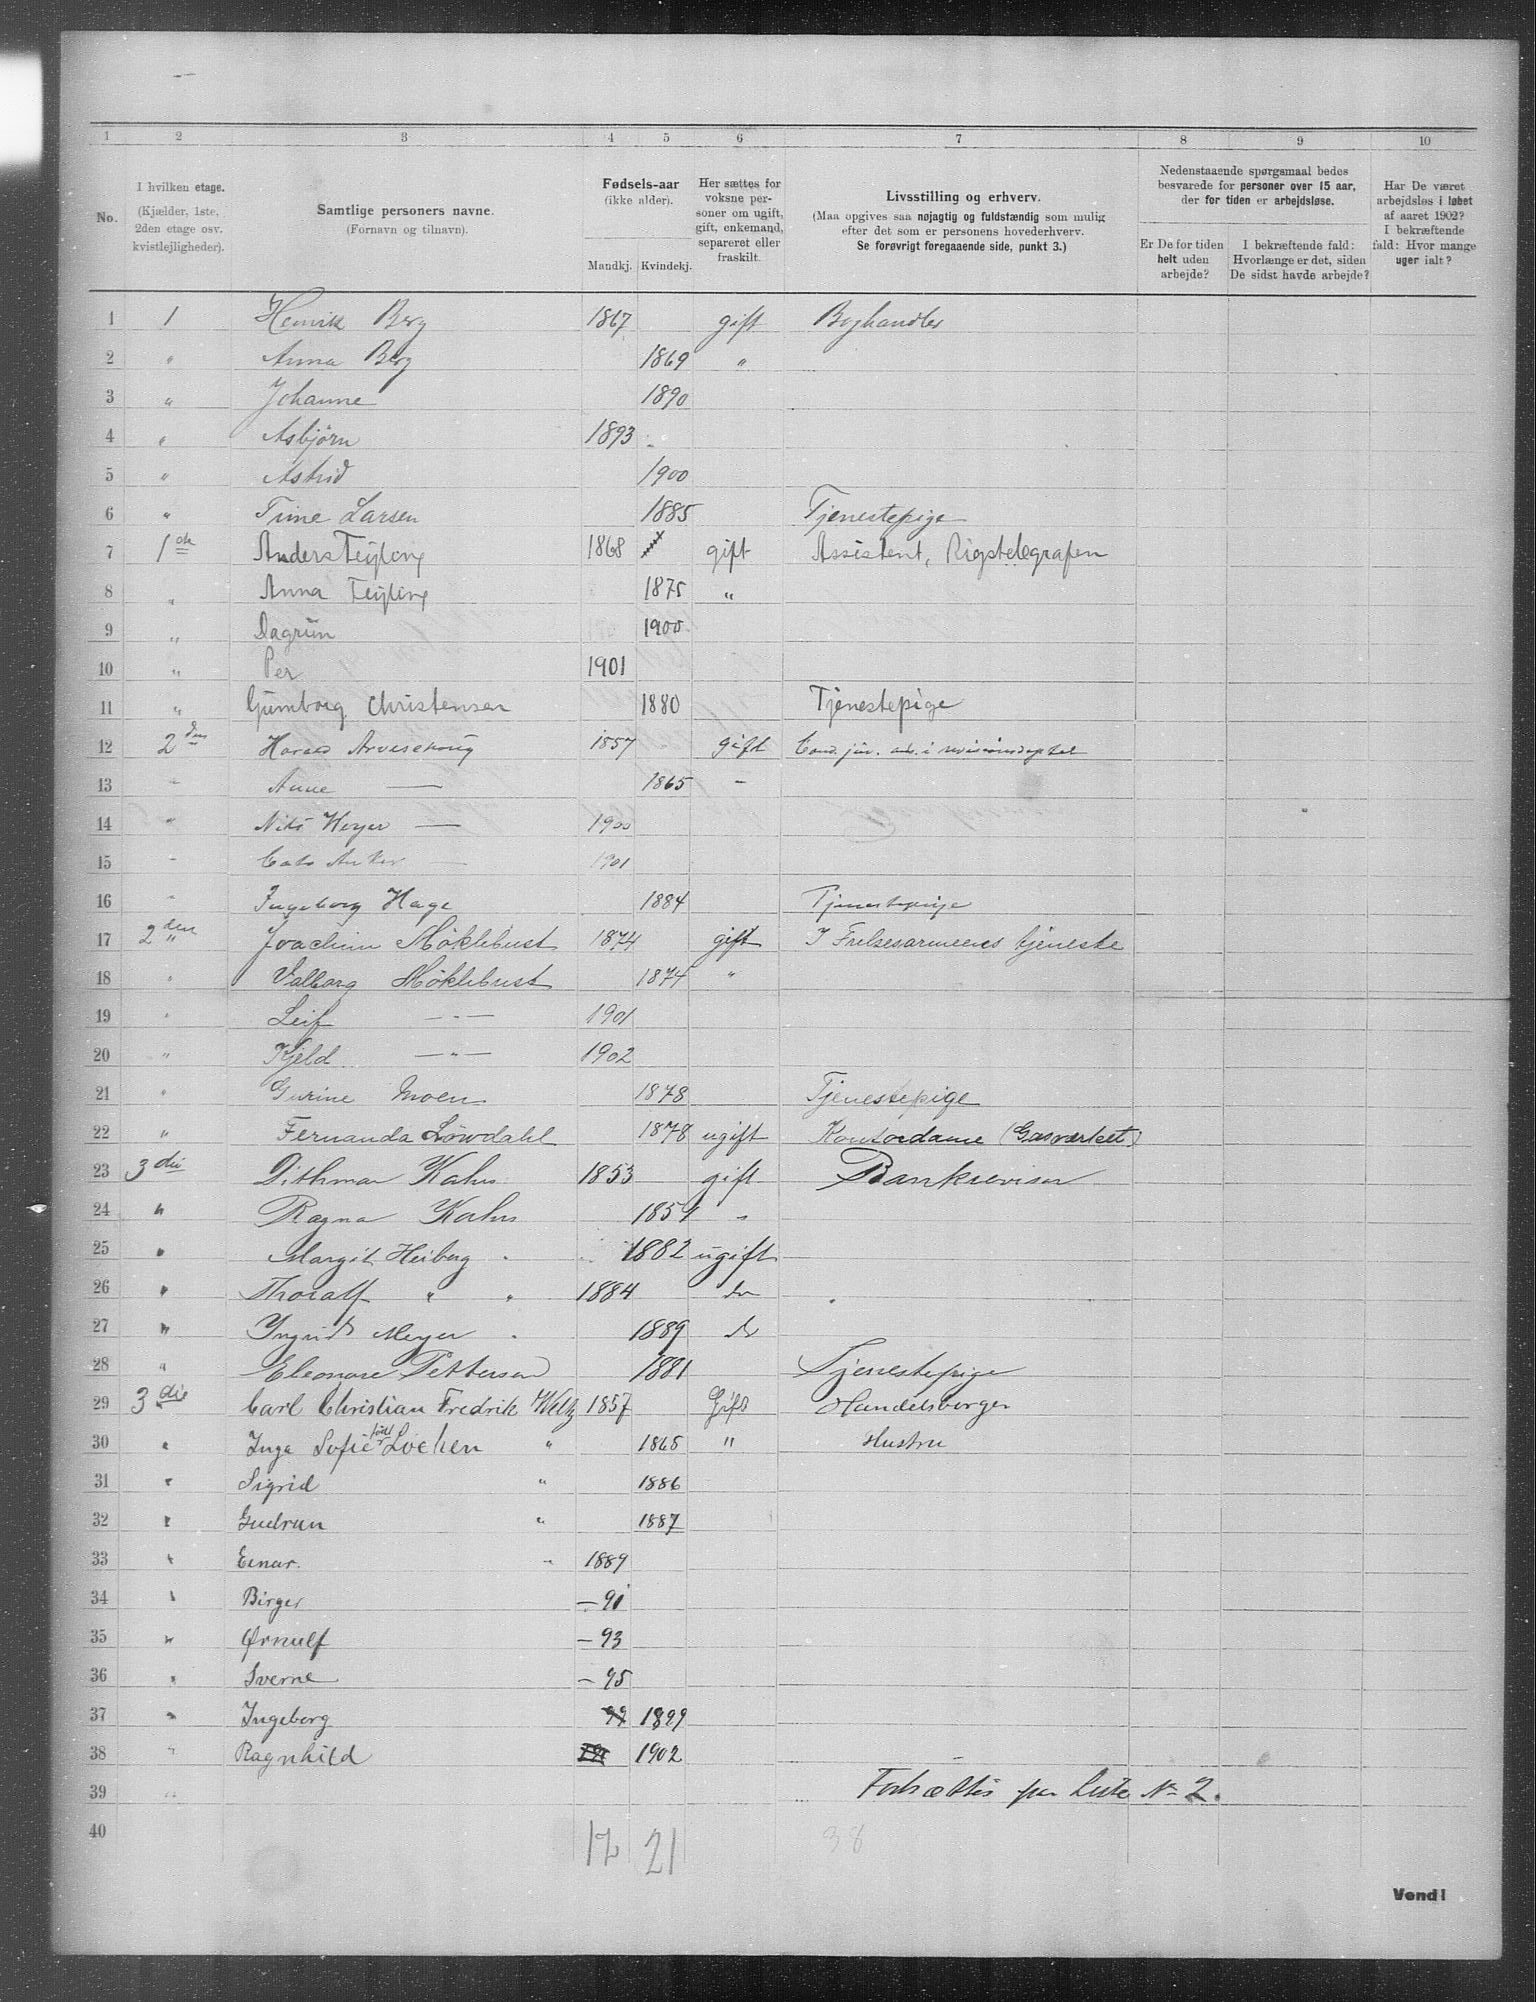 1 2 3 4 5 6 7 8 9 10
No.
I hvilken etage.
(Kjælder, 1ste,
2den etage osv.
kvistlejligheder).
Samtlige personers navne.
(Fornavn og tilnavn).
Fødsels-aar
(ikke alder).
Mandkj. Kvindekj.
Her sættes for
voksne per-
soner om ugift,
gift, enkemand,
separeret eller
fraskilt.
Livsstilling og erhverv.
(Maa opgives saa nøjagtig og fuldstændig som mulig
efter det som er personens hovederhverv.
Se forøvrigt foregaaende side, punkt 3.)
Nedenstaaende spørgsmaal bedes
besvarede for personer over 15 aar,
der for tiden er arbejdsløse.
Er De for tiden
helt uden
arbejde?
I bekræftende fald:
Hvorlænge er det, siden
De sidst havde arbejde?
Har De været
arbejdsløs i løbet
af aaret 1902?
I bekræftende
fald: Hvor mange
uger ialt?
1 1 Henrik Berg 1867 gift Boghandler
2 " Anna Berg 1869 "
3 " Johanne 1890
4 " Asbjørn 1893
5 " Astrid 1900
6 " Trine Larsen 1885 Tjenestepige
7 1ste Anders Tejling 1868 gift Assistent, Rigstelegrafen
8 " Anna Tejling 1875 "
9 " Dagrun 1900
10 " Per 1901
11 " Gunborg Christensen 1880 Tjenestepige
12 2den Harald Arveschoug 1857 gift Cand. jur. ass. i revisionsdeptet
13 " Anne — 1865 "
14 " Nils Heyer — 1900
15 " Cato Anker — 1901
16 " Ingeborg Hage 1884 Tjenestepige
17 2den Joachim Møklebust 1874 gift I Frelsesarmeens tjeneste
18 " Valborg Møklebust 1874 "
19 " Leif —"— 1901
20 " Kjeld —"— 1902
21 " Gurine Moen 1878 Tjenestepige
22 " Fernanda Løwdahl 1878 ugift Kontordame (Gasværket)
23 3die Dithmar Kahrs 1853 gift Bankrevisor
24 " Ragna Kahrs 1857 "
25 " Margit Heiberg 1882 ugift
26 " Thoralf " " 1884 do
27 " Yngrid Meyer 1889 do
28 " Eleonore Pettersen 1881 Tjenestepige
29 3die Carl Christian Fredrik Weltz 1857 Gift Handelsborger
30 " Inga Sofie født Lochen " 1865 " Hustru
31 " Sigrid " 1886
32 " Gudrun " 1887
33 " Einar " 1889
34 " Birger — 91
35 " Ørnulf — 93
36 " Sverne — 95
37 " Ingeborg 99 1899
38 " Ragnhild 1902
39 " Fortsættes paa Liste No 2.
40 17 21 38
Vend!